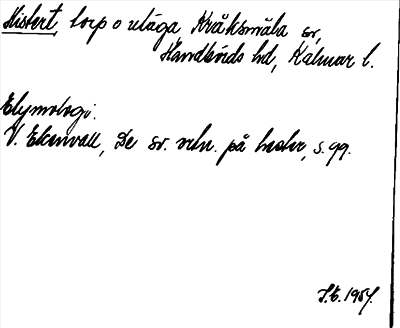 Misbert, torp o utäga Kråksmåla sn,
Handbörds hd, Kalmar l.
Etymologi:
V. Ekenvall, De sv. ortn. på hester, s. 99.
S.E. 1957.